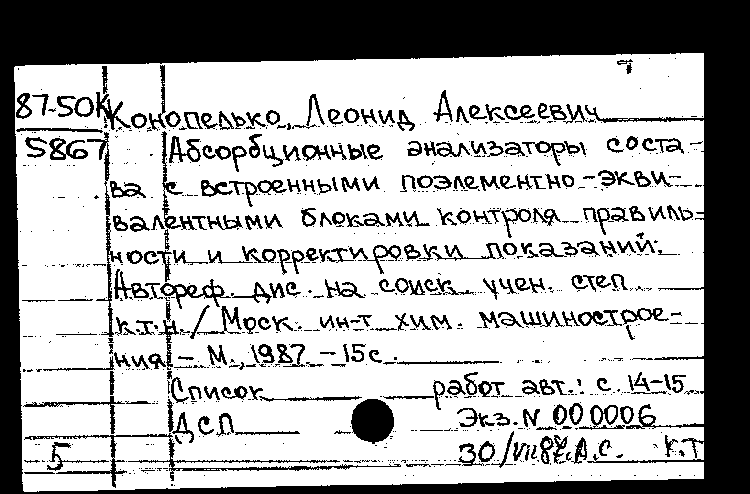 87-50К Конопелько, Леонид Алексеевич
5867 Абсорбционные анализаторы соста-
ва с встроенными поэлементно-экви-
валентными блоками контроля правиль-
ности и корректировки показаний:
Автореф. дис. на соиск. учен. степ.
к.т.н. / Моск. ин-т хим. машинострое-
ния - М., 1987. - 15 с.
Список работ авт.: с. 14-15
ДСП Экз. N 000006
5 30/VII 87. А.С. К.Т